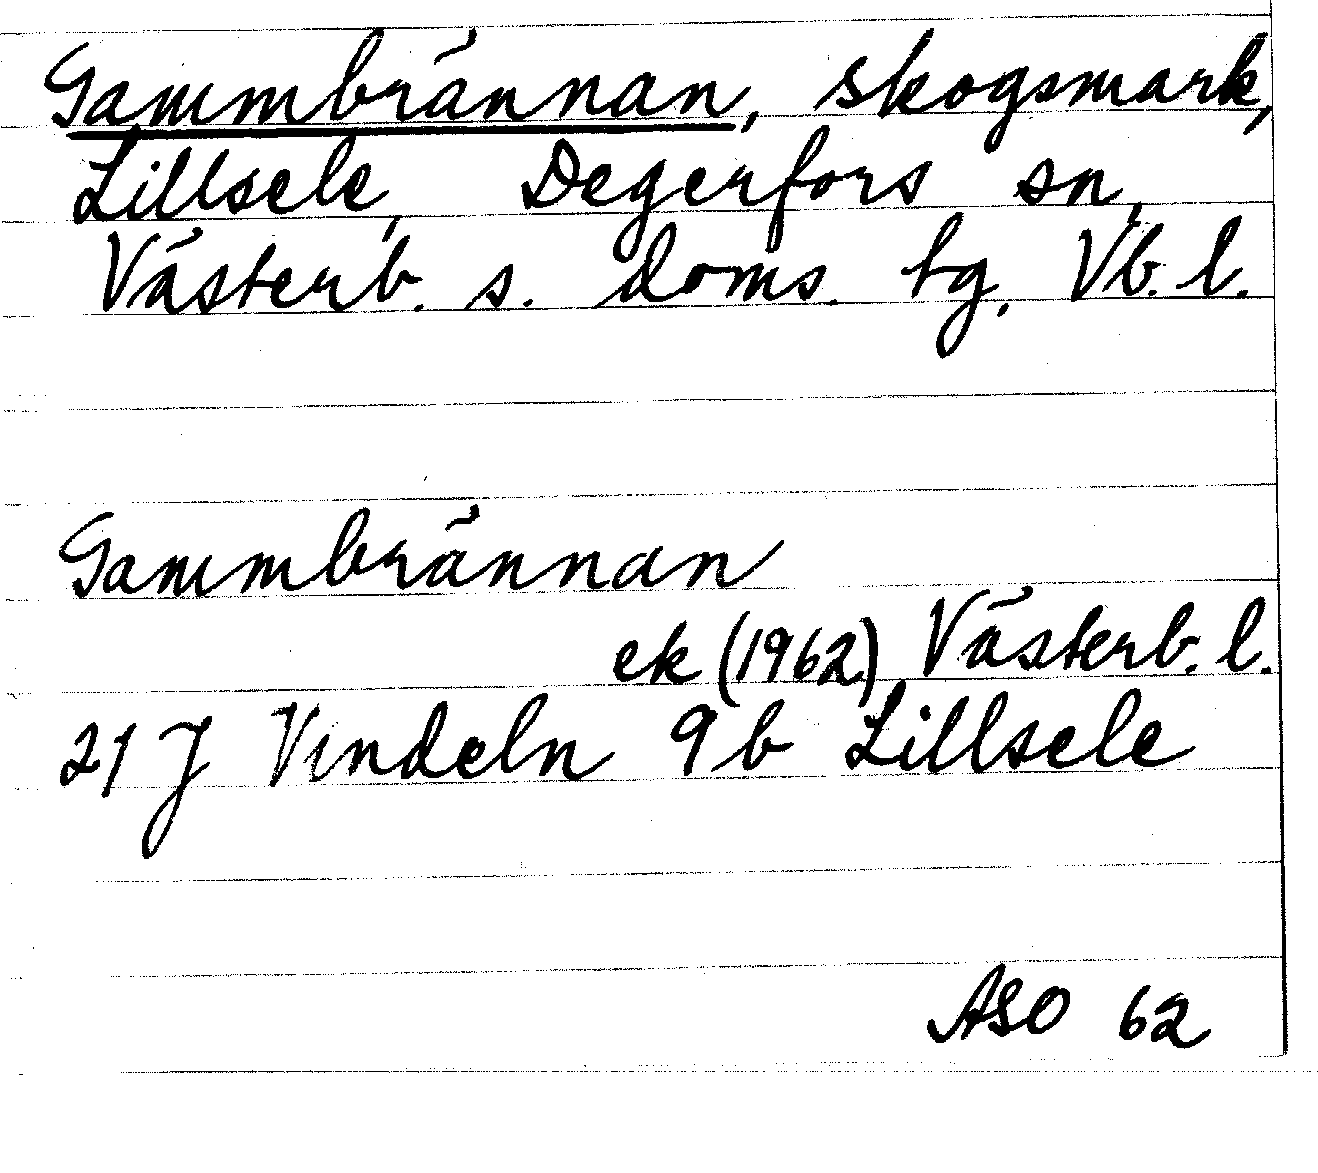 Gammbrännan, skogsmark,
Lillsele, Degerfors sn,
Västerb. s. doms. tg, Vb. l.
Gammbrännan
ek (1962) Västerb. l.
21 J Vindeln 9b Lillsele
ASO 62